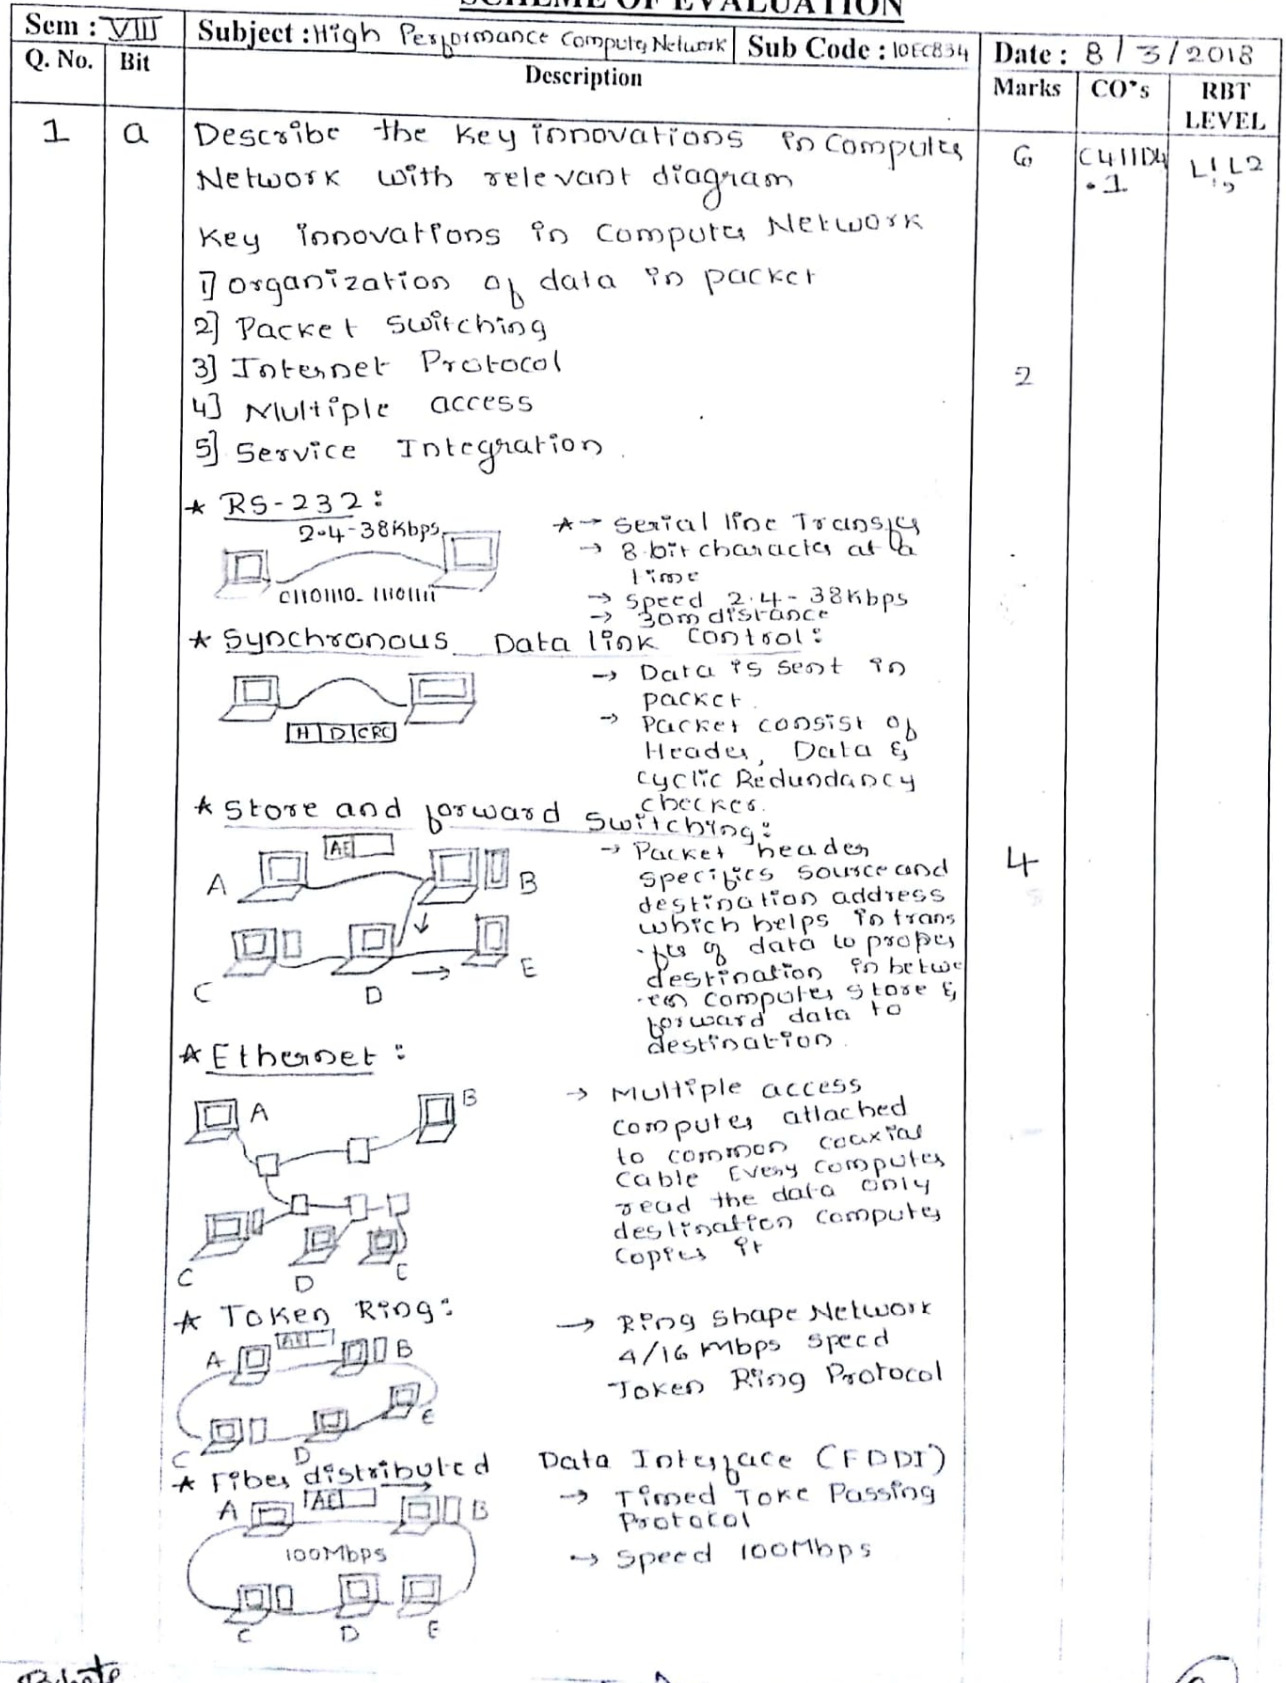 SCHEME OF EVALUATION
Sem : VIII
Subject : High Performance Computer Network
Sub Code : 10EC834
Date : 8/3/2018
Q. No.
Bit
Description
Marks
CO's
RBT
LEVEL
1
a
Describe the key innovations in Computer
Network with relevant diagram
6
C411D4
.1
L1, L2
Key innovations in Computer Network
1] Organization of data in packet
2] Packet Switching
3] Internet Protocol
2
4] Multiple access
5] Service Integration.
* RS-232:
2.4-38Kbps
* → Serial line Transfer
→ 8 bit character at a
time
→ Speed 2.4-38Kbps
→ 30m distance
* Synchronous Data link control:
H D CRC
→ Data is sent in
packet.
→ Packet consist of
Header, Data &
cyclic Redundancy
checker.
* Store and forward Switching:
AE
A
B
C
D
E
→ Packet header
specifies source and
destination address
which helps in trans
-fer of data to proper
destination in betwe
-en computer store &
forward data to
destination.
4
* Ethernet :
A
B
C
D
E
→ Multiple access
computer attached
to common coaxial
cable Every computer
read the data only
destination computer
copies it
* Token Ring:
A
AE
B
C
D
E
→ Ring Shape Network
4/16 Mbps speed
Token Ring Protocol
* Fiber distributed Data Interface (FDDI)
A
AE
B
100Mbps
C
D
E
→ Timed Toke Passing
Protocol
→ Speed 100Mbps